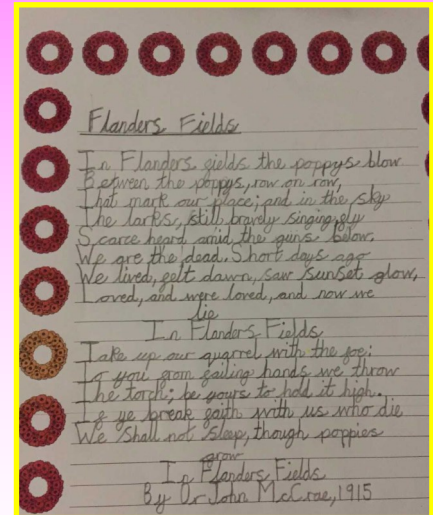 Flanders Fields
In Flanders gields the poppys blow
Between the poppys, row on row,
That mark our place; and in the sky
The larks, still bravely singing, gly
Scarce heard amid the guns below.
We are the dead. Short days ago
We lived, gelt dawn, saw sunset glow,
Loved, and were loved, and now we
lie
In Flanders Fields
Take up our quarrel with the goe:
To you grom gailing hands we throw
The torch; be yours to hold it high.
Ig ye break gaith with us who die
We shall not sleep, though poppies
grow
In Flanders Fields
By Dr John McCrae, 1915